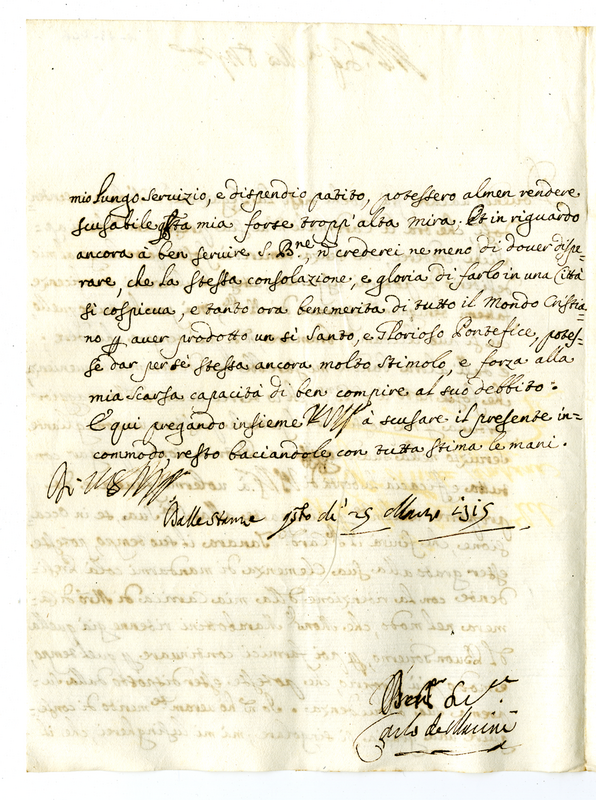 mio lungo servizio, e dispendio patito, potessero almen rendere
scusabile qsta mia forse tropp'alta mira. Et in riguardo
ancora à ben servire S. Bne, ñ crederei ne meno di dover dispe=
rare, che la stessa consolazione, e gloria di farlo in una Città
si cospicua, e tanto ora benemerita di tutto il Mondo Cristia=
no p aver prodotto un si Santo, e Glorioso Pontefice, potes=
se dar per sè stessa ancora molto stimolo, e forza alla
mia scarsa capacità di ben compire al suo debbito.
E qui pregando insieme à scusare il presente in=
commodo, resto baciandole con tutta stima le mani.
Di
Dalle stanze qsto di 25 Marzo 1715
Carlo de Marini